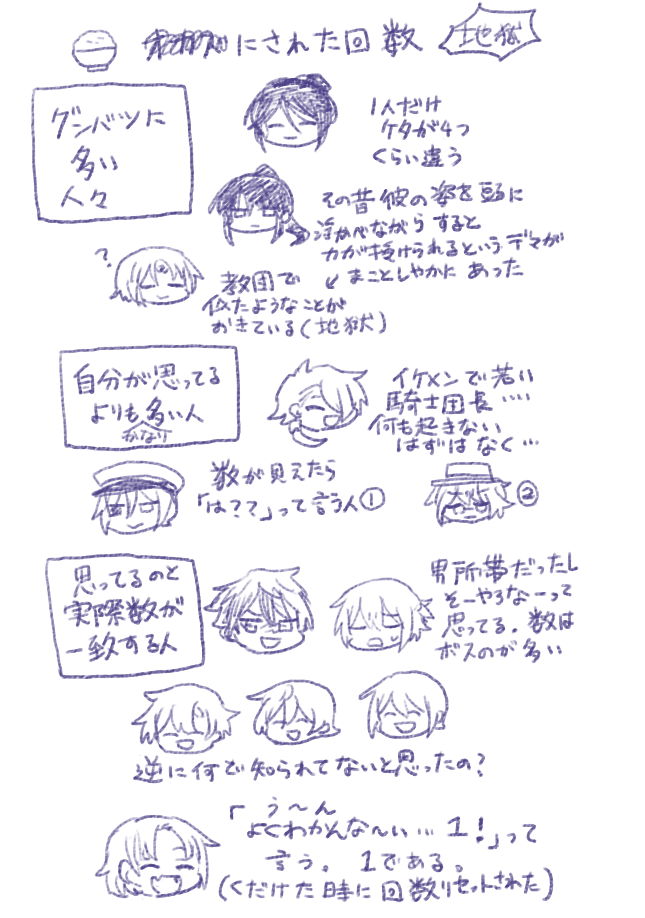 にされた回数
地獄
グンバツに
多い
人々
1人だけ
ケタが4つ
くらい違う
その昔彼の姿を頭に
浮かべながら すると
力が授けられるというデマが
まことしやかに あった
?
教団で
似たようなことが
おきている(地獄)
自分が思ってる
よりも多い人
かなり
イケメンで若い
騎士団長‥‥
何も起きない
はずは なく…
数が見えたら
「は??」って言う人①
②
思ってるのと
実際数が
一致する人
男所帯だったし
そーやろなーって
思ってる。数は
ボスのが多い
逆に何で知られてないと思ったの?
「う〜ん
よくわかんな〜い…1!」って
言う。1である。
(くだけた時に回数リセットされた)